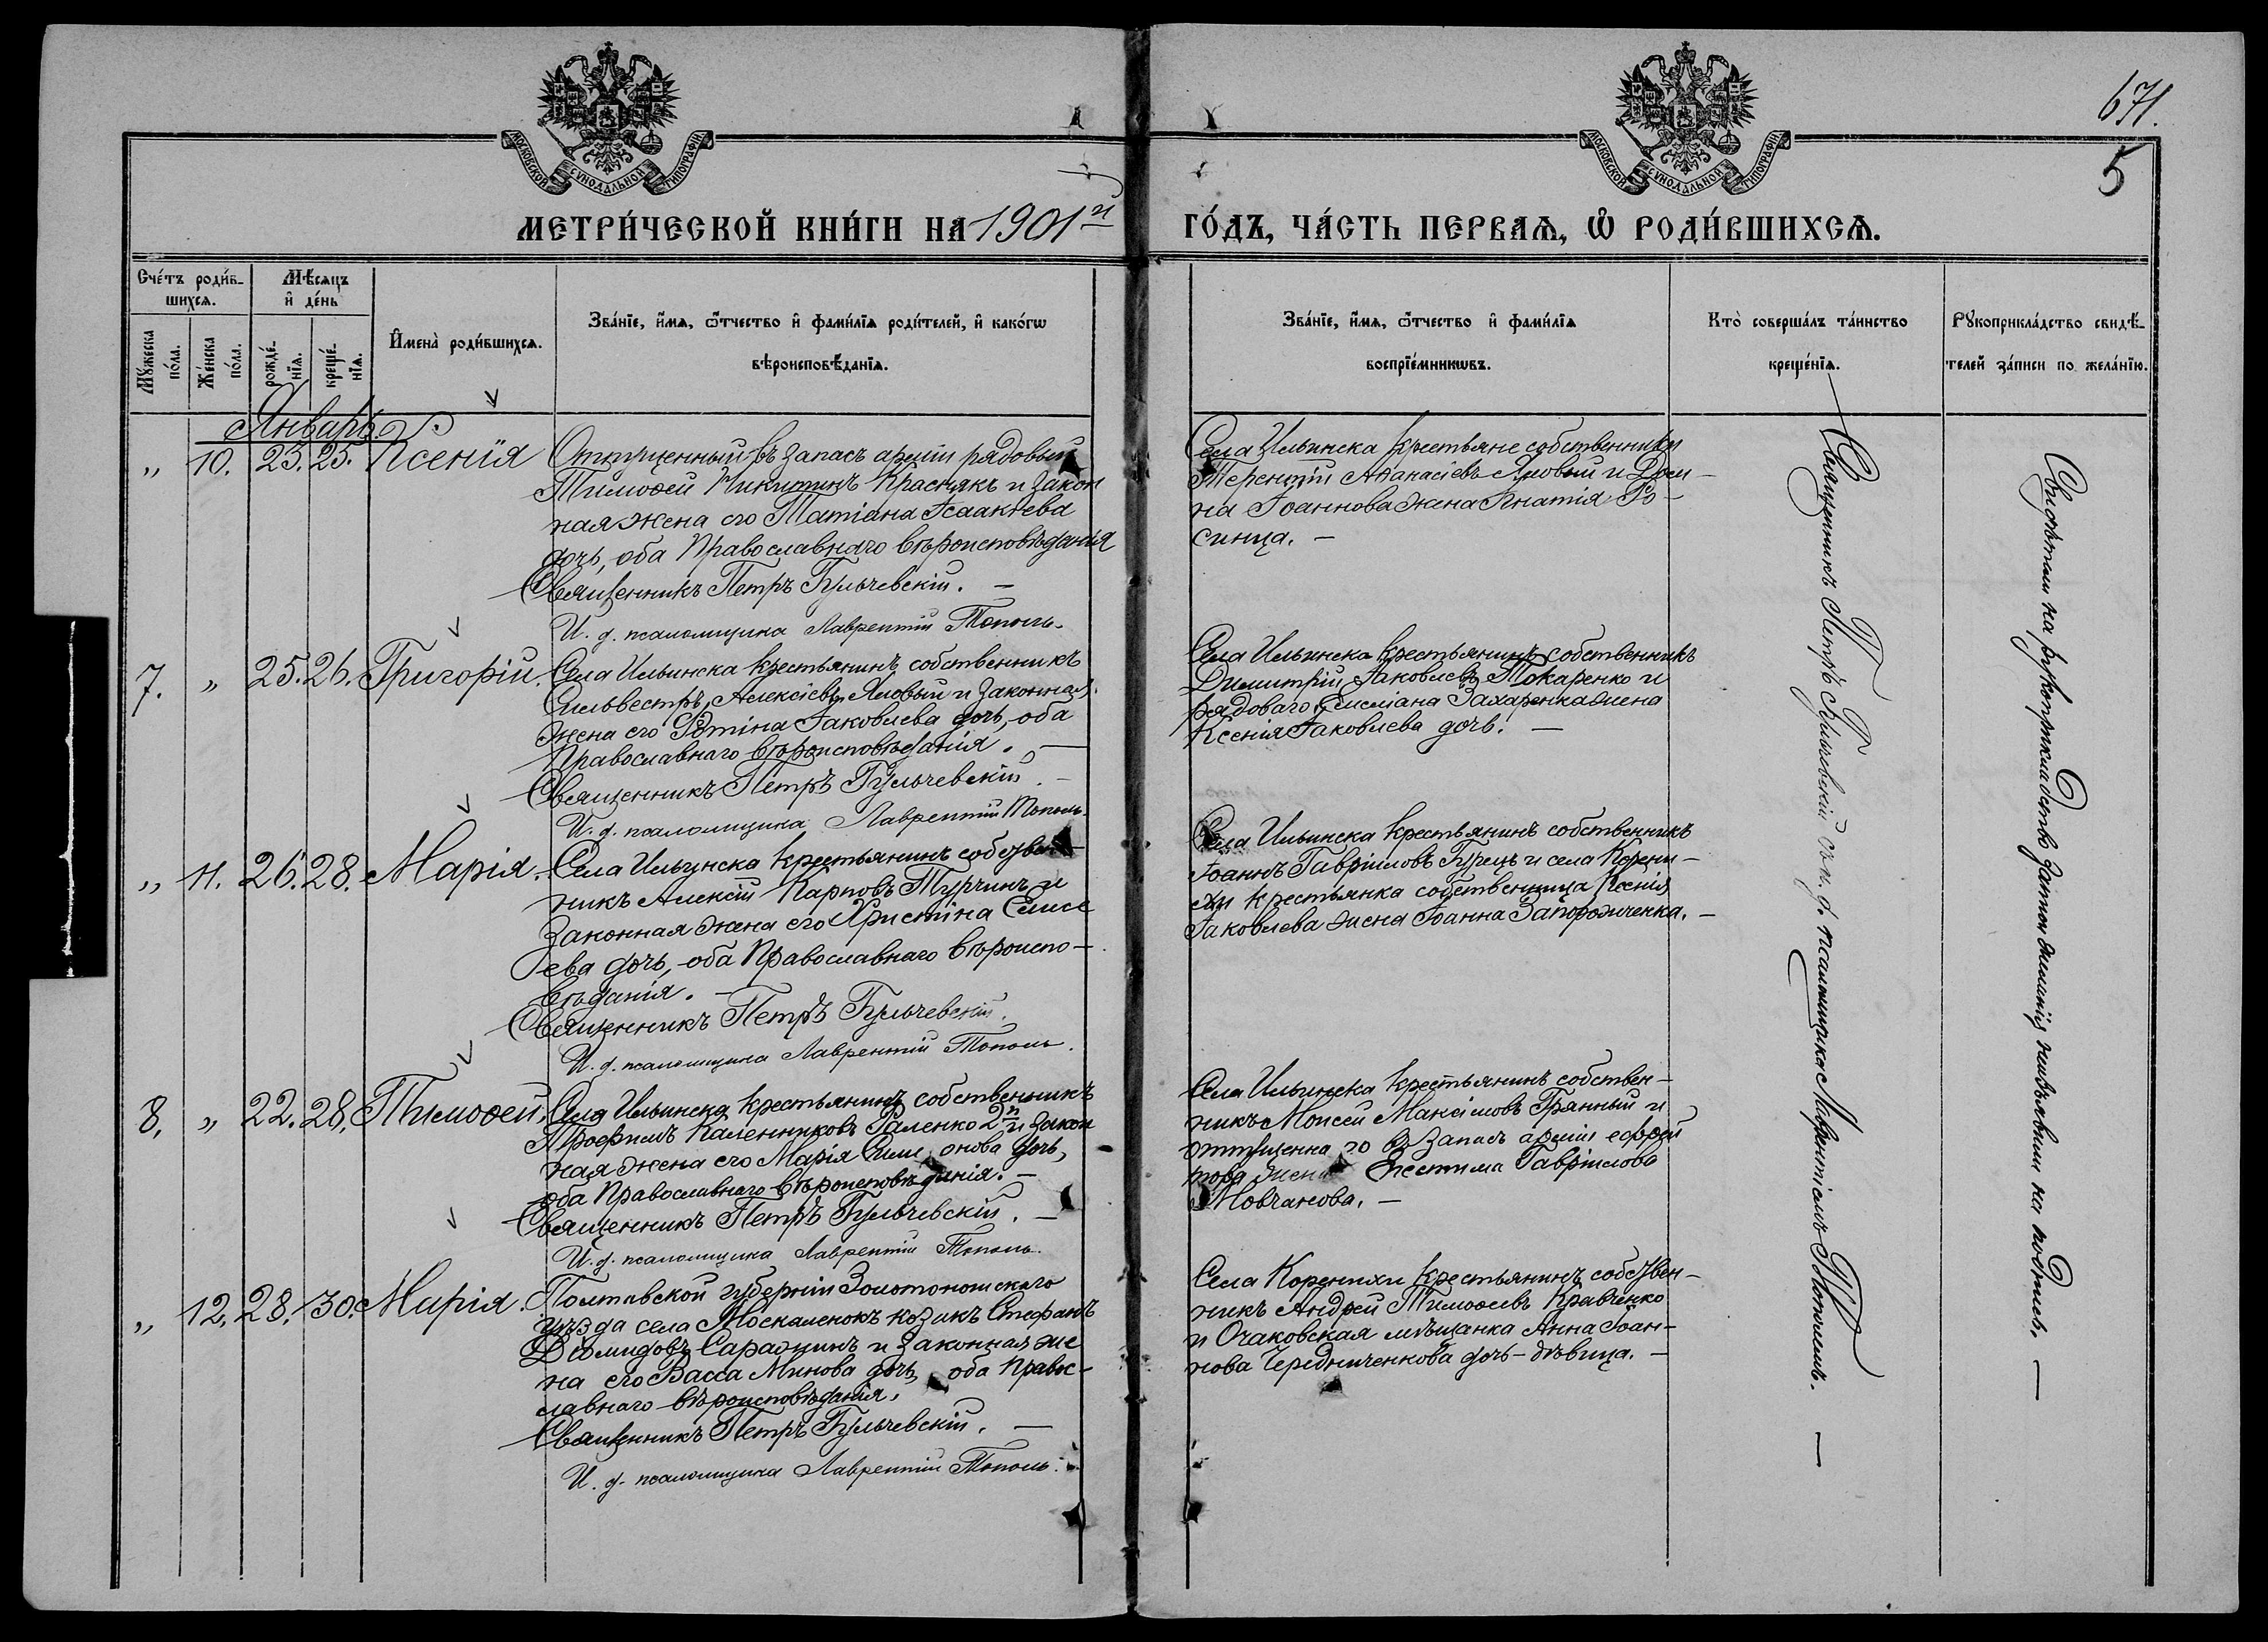 МОСКОВСКОЙ СѴНОДАЛЬНОЙ ТИПОГРАФІИ
МОСКОВСКОЙ СѴНОДАЛЬНОЙ ТИПОГРАФІИ
671.
5
МЕТРИ́ЧЕСКОЙ КНИ́ГИ НА 1901й ГО́ДЪ, ЧА́СТЬ ПЕРВАѦ, Ѡ҆ РОДИ́ВШИХСѦ.
Сче́тъ роди́в-
шихсѧ.
Мѣ́сѧцъ
и҆ де́нь
Мꙋ́жеска по́ла.
Же́нска по́ла.
рожде́-
нїѧ.
креще́-
нїѧ.
И҆мена̀ роди́вшихсѧ.
Зва́нїе, и҆́мѧ, ѻ҆́тчество и҆ фами́лїѧ роди́телей, и҆ како́гѡ
вѣроисповѣ́данїѧ.
Зва́нїе, и҆́мѧ, ѻ҆́тчество и҆ фами́лїѧ
воспрїе́мникѡвъ.
Кто̀ соверша́лъ та́инство
креще́нїѧ.
Рꙋкоприкла́дство свидѣ́-
телей за́писи по жела́нїю.
Январь.
„ 10. 23. 25. Ксенія
Отпущенный въ запасъ арміи рядовый
Тимоѳей Никитинъ Краснякъ и закон
ная жена его Татіана Исаакіева
дочь, оба Православнаго вѣроисповѣданія
Священникъ Петръ Бульчевскій. —
И. д. псаломщика Лаврентій Тополь.
Села Ильинска крестьяне собственники
Терентій Аѳанасіевъ Яловый и Дом-
на Іоаннова жена Игнатія Ро-
синца. —
7. „ 25. 26. Григорій.
Села Ильинска крестьянинъ собственникъ
Сильвестръ Алексіевъ Яловый и законная
жена его Фотіна Іаковлева дочь, оба
Православнаго вѣроисповѣданія. —
Священникъ Петръ Бульчевскій. —
И. д. псаломщика Лаврентій Тополь.
Села Ильинска крестьянинъ собственникъ
Димитрій Іаковлевъ Токаренко и
рядоваго Емеліана Захаренка жена
Ксенія Іаковлева дочь. —
„ 11. 26. 28. Марія.
Села Ильинска крестьянинъ собствен-
никъ Алексій Карповъ Турчинъ и
законная жена его Христіна Елисе
ева дочь, оба Православнаго вѣроиспо-
вѣданія. —
Священникъ Петръ Бульчевскій.
И. д. псаломщика Лаврентій Тополь.
Села Ильинска крестьянинъ собственникъ
Іоаннъ Гавріиловъ Гурецъ и села Корени-
хи крестьянка собственница Ксенія
Іаковлева жена Іоанна Запорожченка. —
8. „ 22. 28. Тимоѳей.
Села Ильинска крестьянинъ собственникъ
Трофимъ Каленниковъ Галенко 2й и закон
ная жена его Марія дочь,
оба Православнаго вѣроисповѣданія. —
Священникъ Петръ Бульчевскій. —
И. д. псаломщика Лаврентій Тополь.
Села Ильинска крестьянинъ собствен-
никъ Моисей Максімовъ Грянный и
отпущеннаго въ запасъ арміи ефрей
тора жена Гавріилова
Мовчанова. —
„ 12. 28. 30. Марія.
Полтавской губерніи Золотоношскаго
уѣзда села Москаленокъ козакъ Стефанъ
Діомидовъ и законная же
на его Васса Минова дочь, оба Право-
славнаго вѣроисповѣданія.
Священникъ Петръ Бульчевскій. —
И. д. псаломщика Лаврентій Тополь.
Села Коренихи крестьянинъ собствен-
никъ Андрей Тимоѳеевъ Кравченко
и Очаковская мѣщанка Анна Іоан-
нова Чередниченкова дочь-дѣвица. —
Священникъ Петръ Бульчевскій съ и. д. псаломщика Лаврентіемъ Тополемъ. —
Свидѣтели на рукоприкладство записи желанія неизъявили на подпись. —